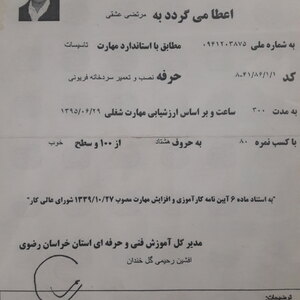 اعطا می گردد به مرتضی عشقی
به شماره ملی ۰۹۴۱۲۰۳۸۷۵ مطابق با استاندارد مهارت تاسیسات
کد ۸-۴۱/۸۶/۱/۱ حرفه نصب و تعمیر سردخانه فریونی
به مدت ۳۰۰ ساعت و بر اساس ارزشیابی مهارت شغلی ۱۳۹۵/۰۶/۲۹
با کسب نمره ۸۰ به حروف هشتاد از ۱۰۰ و سطح خوب
"به استناد ماده ۶ آیین نامه کارآموزی و افزایش مهارت مصوب ۱۳۳۹/۱۰/۲۷ شورای عالی کار"
مدیر کل آموزش فنی و حرفه ای استان خراسان رضوی
افشین رحیمی گل خندان
توضیحات: